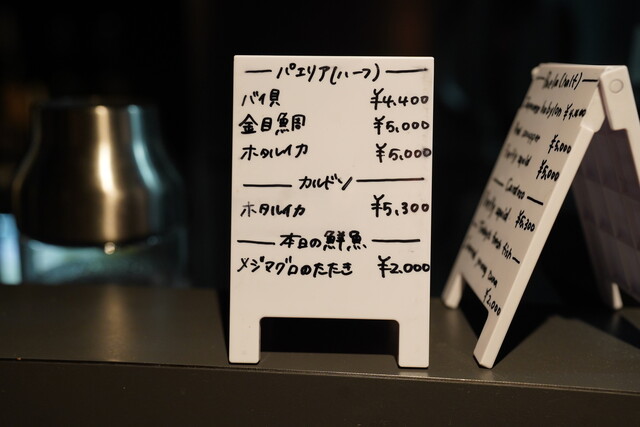 パエリア(ハーフ)
バイ貝 ¥4,400
金目魚周 ¥5,000
ホタルイカ ¥5,000
カルドソ
ホタルイカ ¥5,300
本日の鮮魚
メジマグロのたたき ¥2,000
Paella (half)
babylon ¥4,400
¥5,000
squid ¥5,000
squid ¥5,300
fresh fish
¥2,000